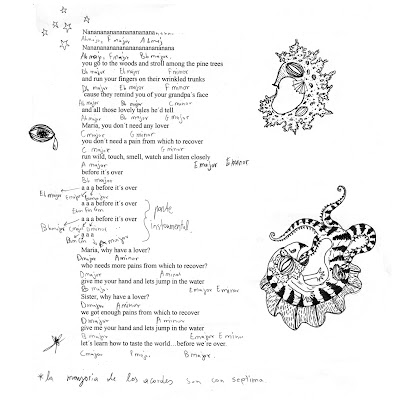 Nanananananananananananana
Ab major, F major Ab major
Nanananananananananananananana
Ab major, F major Bb major
you go to the woods and stroll among the pine trees
Bb major Eb major F minor
and run your fingers on their wrinkled trunks
Db major Eb major F major
'cause they remind you of your grandpa's face
Ab major Bb major C minor
and all those lovely tales he'd tell
Ab major Bb major G major
Maria, you don't need any lover
C major G minor
you don't need a pain from which to recover
C major G minor
run wild, touch, smell, watch and listen closely
A major E major E minor
before it's over
Bb major
a a a before it's over
Eb major
a a a before it's over
a a a before it's over
parte
instrumental
a a a
Maria, why have a lover?
D major A minor
who needs more pains from which to recover?
D major A minor
give me your hand and lets jump in the water
B major E major E minor
Sister, why have a lover?
D major A minor
we got enough pains from which to recover
D major A minor
give me your hand and lets jump in the water
B major E major E minor
let's learn how to taste the world…before we're over.
C major F major B major
*la mayoria de los acordes son con septima